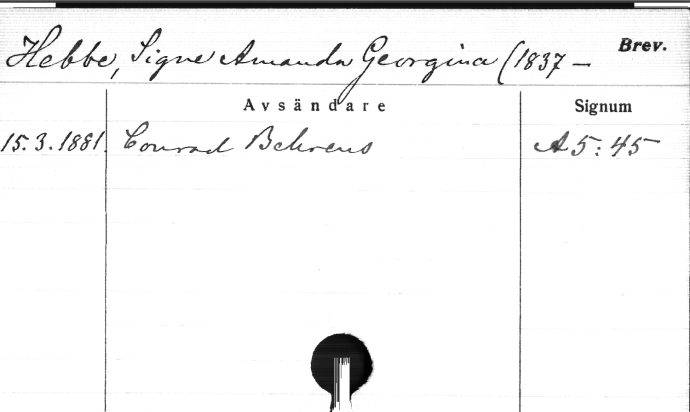 Hebbe, Signe Amanda Georgina (1837 – Brev.
Avsändare Signum
15.3.1881. Conrad Behrens A5:45